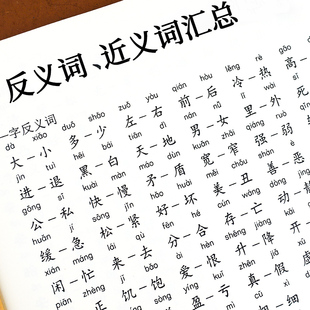 反义词、近义词汇总
一字反义词
dà xiǎo duō shǎo zuǒ yòu qián hòu lěng rè gāo
大—小 多—少 左—右 前—后 冷—热 高—
jìn tuì hēi bái tiān dì nán nǚ lǐ wài
进—退 黑—白 天—地 男—女 里—外 死
gōng sī kuài màn máo dùn kuān zhǎi qiáng ruò
公—私 快—慢 矛—盾 宽—窄 强—弱
huǎn jí sōng jǐn hǎo huài měi chǒu shàn è
缓—急 松—紧 好—坏 美—丑 善—恶
xián máng lái qù fēn hé cún wáng dòng
闲—忙 来—去 分—合 存—亡 动—静
piān zhèng jī bǎo ài hèn shēng jiàng kāi
正 饥—饱 爱—恨 升—降 开—
yíng kuī zhēn jiǎ
盈—亏 真—假 虚
细